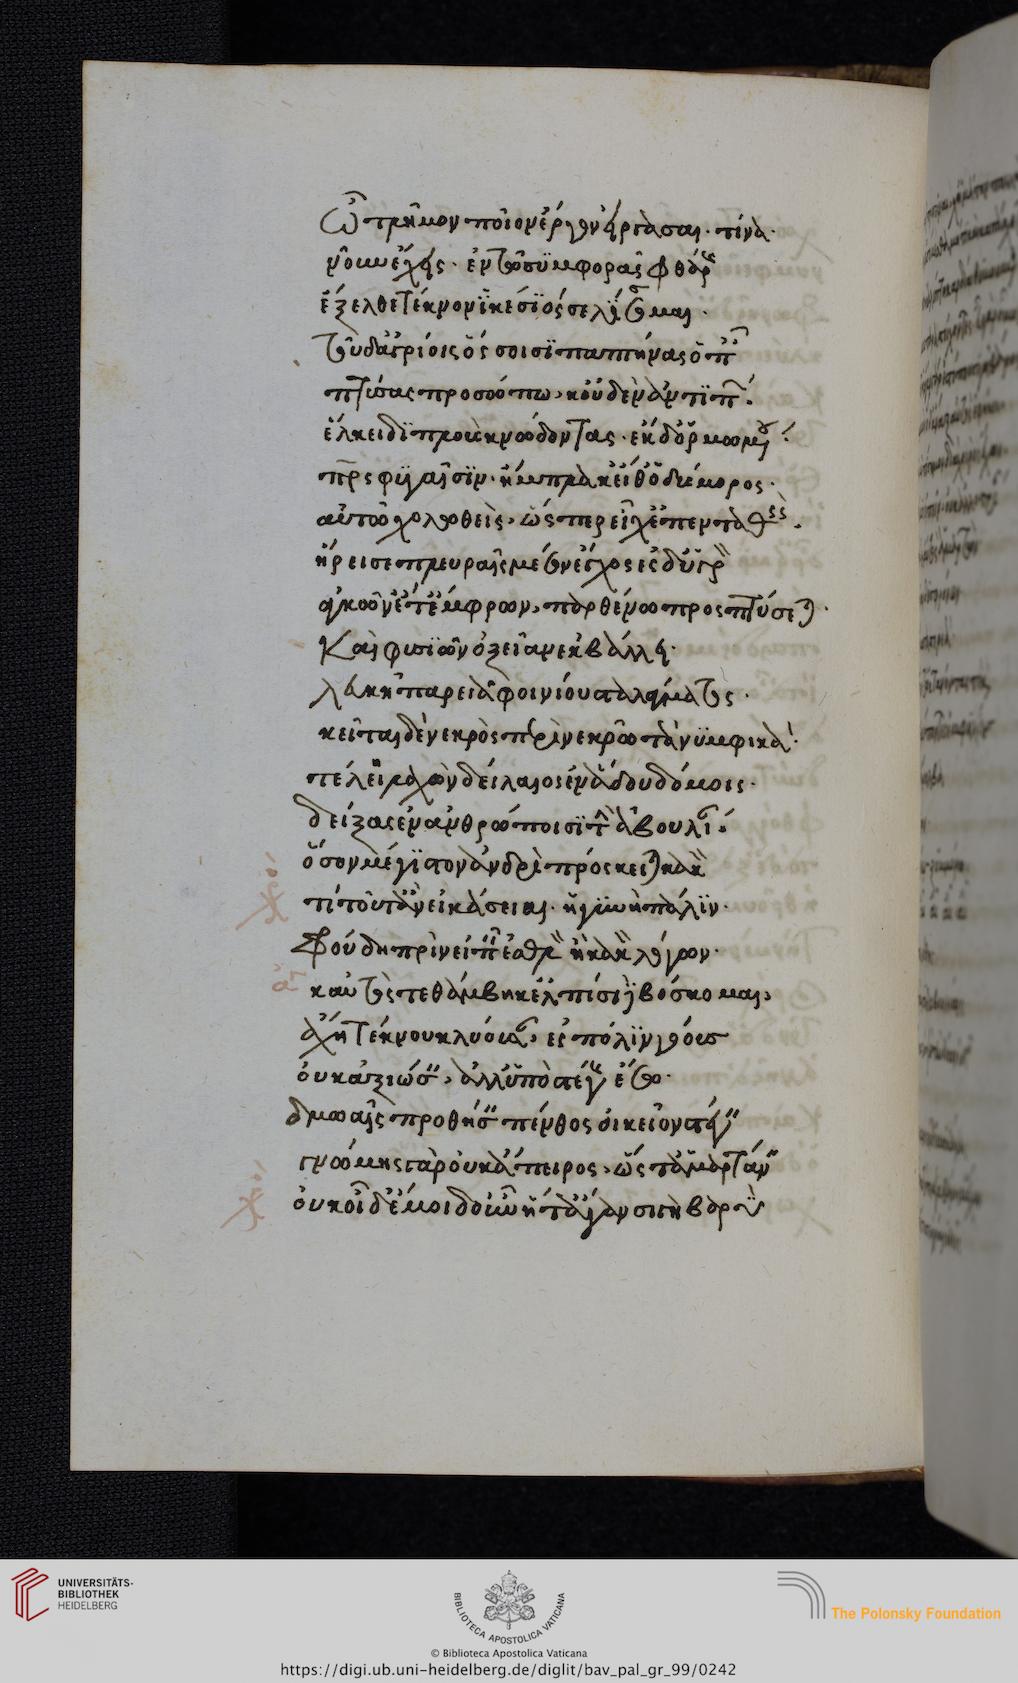 Ὦ τλῆμον ποῖον ἔργον εἴργασαι. τίνα
νοῦν ἔσχες. ἐν τῷ συμφορᾶς διεφθάρης
ἔξελθε τέκνον ἱκέσιός σε λίσσομαι.
τὸν δ' ἀγρίοις ὄσσοισι παπτήνας ὁ παῖς
πτύσας προσώπῳ, κοὐδὲν ἀντειπών.
ἕλκει διπλοῦς κνώδοντας. ἐκ δ' ὁρμωμένου
πατρὸς φυγαῖσιν. ἤμπλακ' εἶθ' ὁ δύσμορος.
αὑτῷ χολωθεὶς, ὥσπερ εἶχ' ἐπενταθεὶς.
ἤρεισε πλευραῖς μέσσον ἔγχος ἐς δ' ὑγρὸν
ἀγκῶν' ἔτ' ἔμφρων, παρθένῳ προσπτύσεται.
Καὶ φυσιῶν ὀξεῖαν ἐκβάλλει.
λευκῇ παρειᾷ φοινίου σταλάγματος.
κεῖται δὲ νεκρὸς περὶ νεκρῷ τὰ νυμφικὰ.
τέλη λαχὼν δείλαιος ἐν ᾅδου δόμοις.
δείξας ἐν ἀνθρώποισι τὴν ἀβουλίαν.
ὅσον μέγιστον ἀνδρὶ πρόσκειται κακὸν
χρο
τί τοῦτ' ἂν εἰκάσειας. ἡ γυνὴ πάλιν.
φρούδη πρὶν εἰπεῖν ἐσθλὸν ἢ κακὸν λόγον.
ἄγ
καὐτὸς τεθάμβηκ' ἐλπίσι δὲ βόσκομαι,
ἄχη τέκνου κλύουσαν, ἐς πόλιν γόους
οὐκ ἀξιώσειν, ἀλλ' ὑπὸ στέγης ἔσω.
δμωαῖς προθήσειν πένθος οἰκεῖον στένειν
γνώμης γὰρ οὐκ ἄπειρος, ὥσθ' ἁμαρτάνειν
χρο
οὐκ οἶδ' ἐμοὶ δ' οὖν ἥ τ' ἄγαν σιγὴ βαρὺ
UNIVERSITÄTS-
BIBLIOTHEK
HEIDELBERG
BIBLIOTECA APOSTOLICA VATICANA
The Polonsky Foundation
© Biblioteca Apostolica Vaticana
https://digi.ub.uni-heidelberg.de/diglit/bav_pal_gr_99/0242